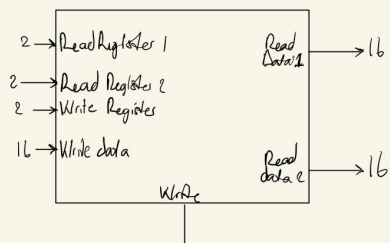 2 Read Register 1
2 Read Register 2
2 Write Register
16 Write data
Read
Data 1
16
Read
data 2
16
Write